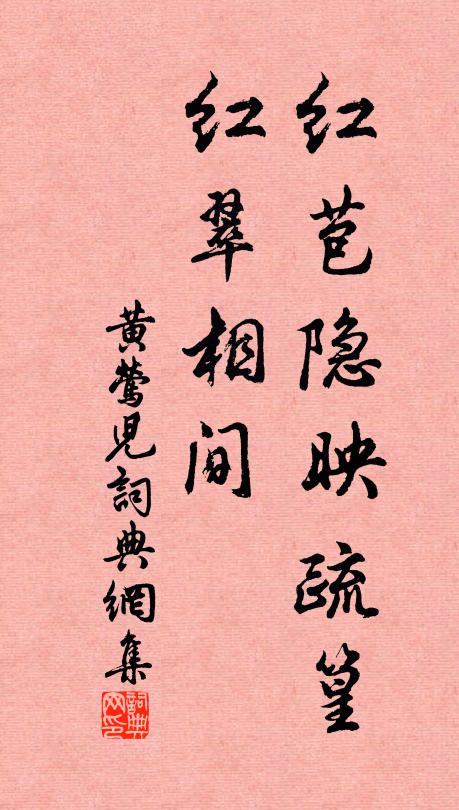 红苞隐映疏篁
红翠相间
黄莺児詞典網集
詞典网印